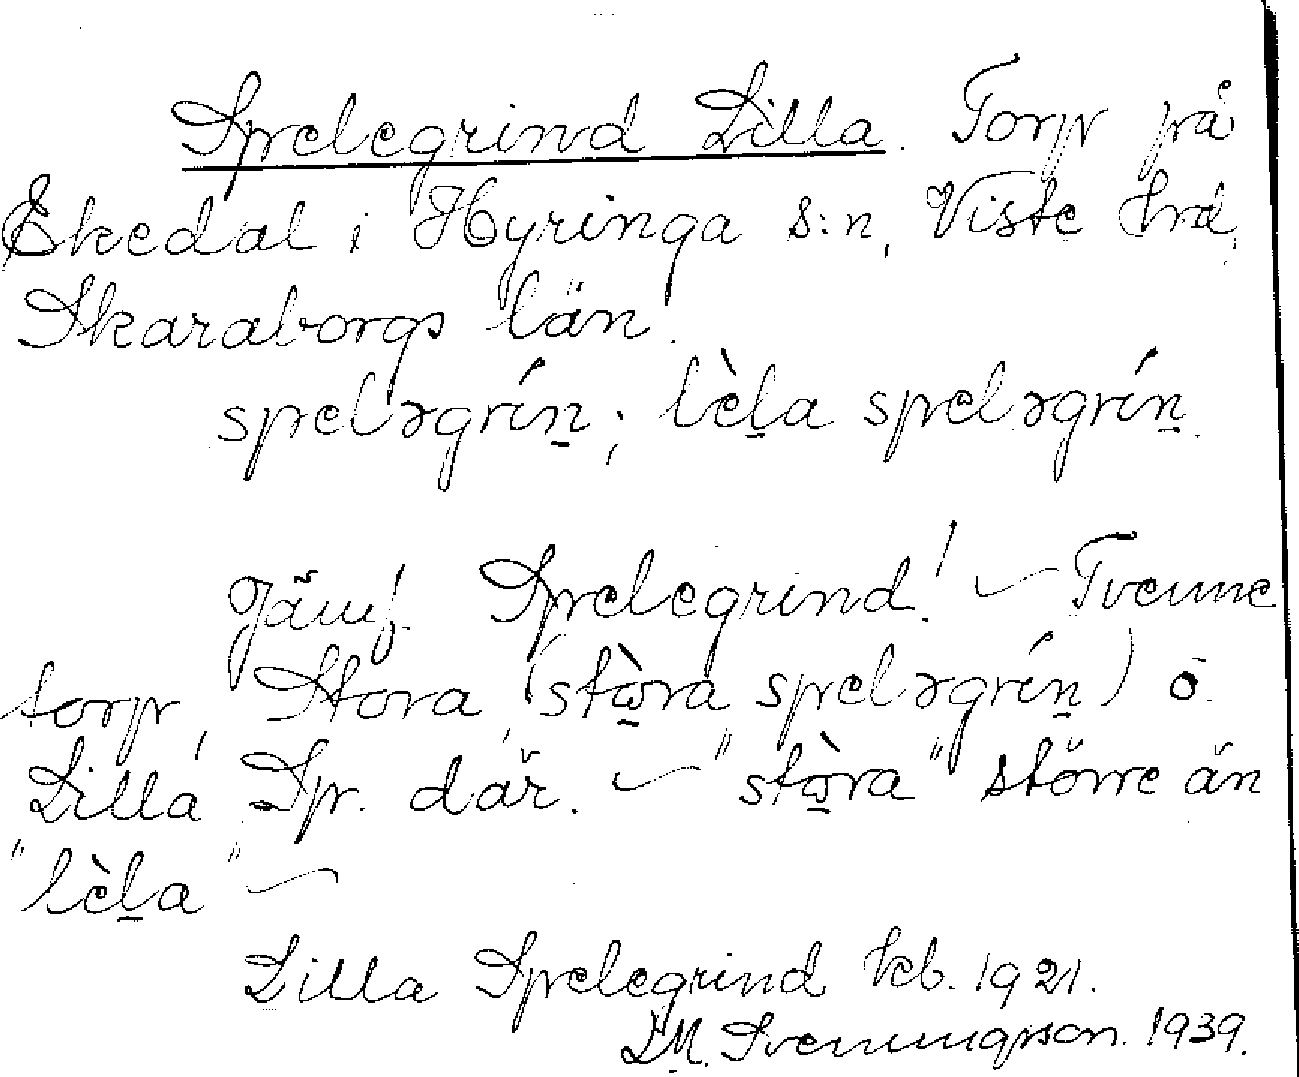 Spelegrind Lilla. Torp på
Ekedal i Hyringa s:n, Viste hrd,
Skaraborgs län.
spelǝgrín̲; lèl̲a spelǝgrín̲.
Jämf. Spelegrind! ~ Tvenne
torp, Stora (stò̲ra spelǝgrín̲) o.
Lilla Sp. där. ~ "stò̲ra" större än
"lèl̲a" ~
Lilla Spelegrind kb. 1921.
D.M. Svenungsson. 1939.